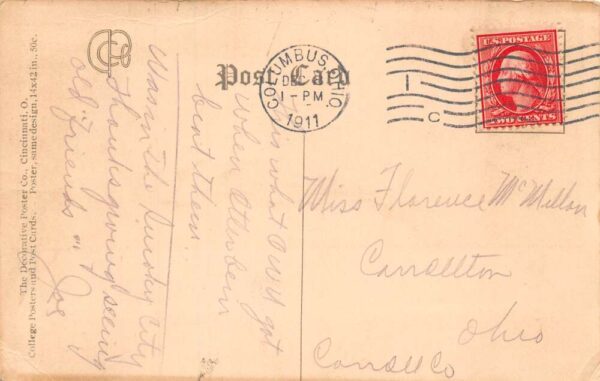 The Decorative Poster Co., Cincinnati, O.
College Posters and Post Cards. Poster, same design, 14x42 in., 50c.
Post Card
COLUMBUS, OHIO
DEC
1-PM
1911
C
U.S. POSTAGE
TWO CENTS
is what O.W.U. got
when Otterbein
beat them.
Was in the Smoky City
Thanksgiving seeing
old friends
Joe
Miss Florence McMillan
Carrollton
Ohio
Carroll Co